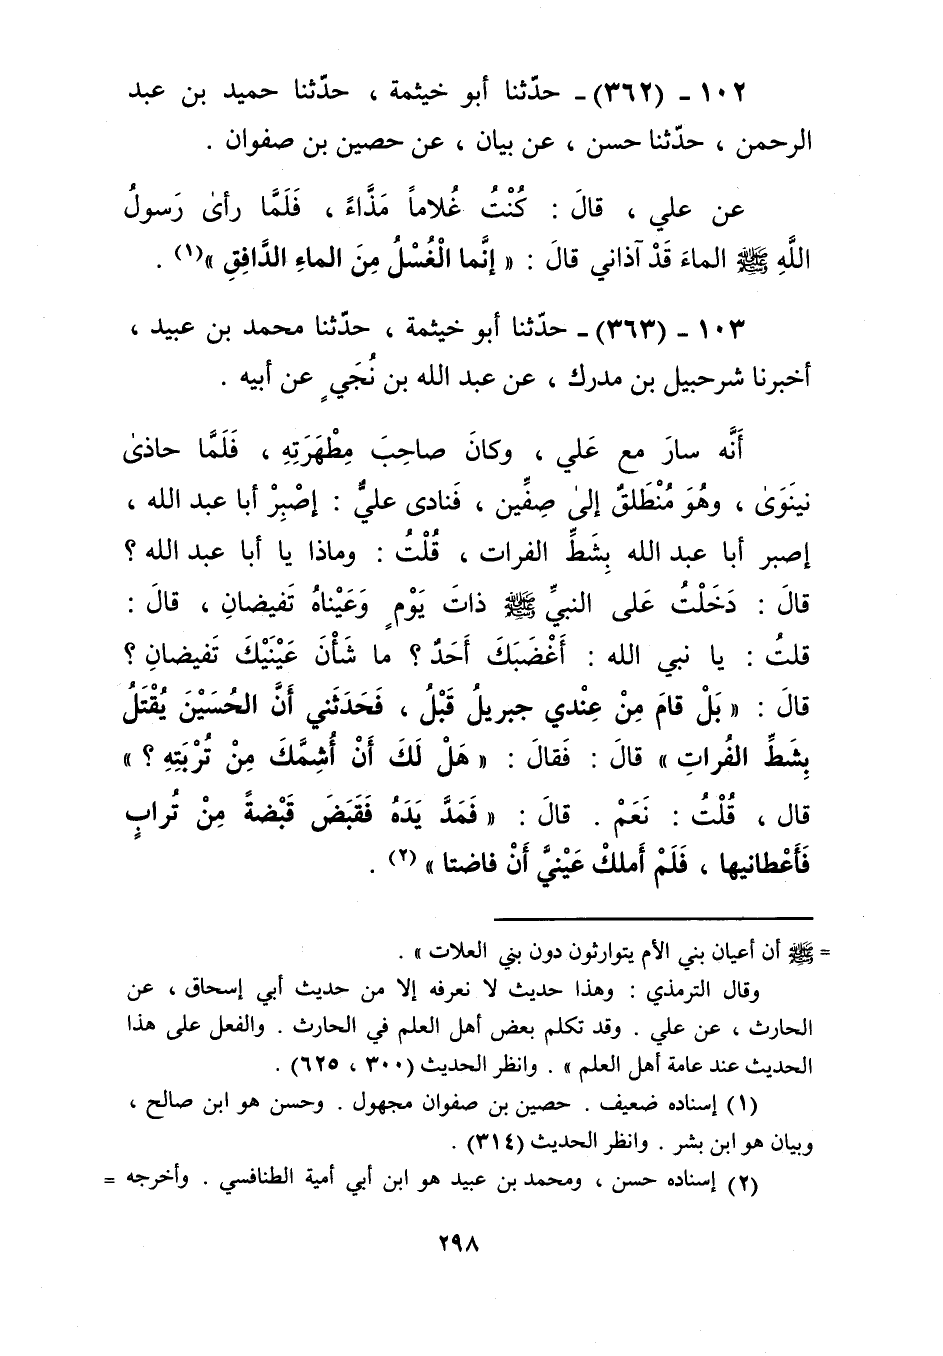 ١٠٢ - (٣٦٢) - حدّثنا أبو خيثمة ، حدّثنا حميد بن عبد
الرحمن ، حدّثنا حسن ، عن بيان ، عن حصين بن صفوان .
عن علي ، قالَ : كُنْتُ غُلاماً مَذَّاءً ، فَلَمَّا رأىٰ رَسولُ
اللَّهِ ﷺ الماءَ قَدْ آذاني قالَ : « إنَّما الْغُسْلُ مِنَ الماءِ الدَّافِقِ »(١) .
١٠٣ - (٣٦٣) - حدّثنا أبو خيثمة ، حدّثنا محمد بن عبيد ،
أخبرنا شرحبيل بن مدرك ، عن عبد الله بن نُجَي ٍ عن أبيه .
أَنَّه سارَ مع عَلي ، وكانَ صاحِبَ مِطْهَرَتِهِ ، فَلَمَّا حاذىٰ
نينَوَىٰ ، وهُوَ مُنْطَلقٌ إلىٰ صِفِّين ، فَنادى عليٌّ : إصْبِرْ أبا عبد الله ،
إصبر أبا عبد الله بِشَطِّ الفرات ، قُلْتُ : وماذا يا أبا عبد الله ؟
قالَ : دَخَلْتُ عَلى النبيِّ ﷺ ذاتَ يَوْم ٍ وَعَيْناهُ تَفيضانِ ، قالَ :
قلتُ : يا نبي الله : أَغْضَبَكَ أَحَدٌ ؟ ما شَأْنَ عَيْنَيْكَ تَفيضانِ ؟
قالَ : « بَلْ قامَ مِنْ عِنْدي جبريلُ قَبْلُ ، فَحَدَثَني أَنَّ الحُسَيْنَ يُقْتَلُ
بِشَطِّ الفُراتِ » قالَ : فَقالَ : « هَلْ لَكَ أَنْ أُشِمَّكَ مِنْ تُرْبَتِهِ ؟ »
قال ، قُلْتُ : نَعَمْ . قالَ : « فَمَدَّ يَدَهُ فَقَبَضَ قَبْضةً مِنْ تُرابٍ
فَأَعْطانيها ، فَلَمْ أَملكْ عَيْنيَّ أَنْ فاضتا »(٢) .
= ﷺ أن أعيان بني الأم يتوارثون دون بني العلات » .
وقال الترمذي : وهذا حديث لا نعرفه إلا من حديث أبي إسحاق ، عن
الحارث ، عن علي . وقد تكلم بعض أهل العلم في الحارث . والفعل على هذا
الحديث عند عامة أهل العلم » . وانظر الحديث (٣٠٠ ، ٦٢٥) .
(١) إسناده ضعيف . حصين بن صفوان مجهول . وحسن هو ابن صالح ،
وبيان هو ابن بشر . وانظر الحديث (٣١٤) .
(٢) إسناده حسن ، ومحمد بن عبيد هو ابن أبي أمية الطنافسي . وأخرجه =
٢٩٨